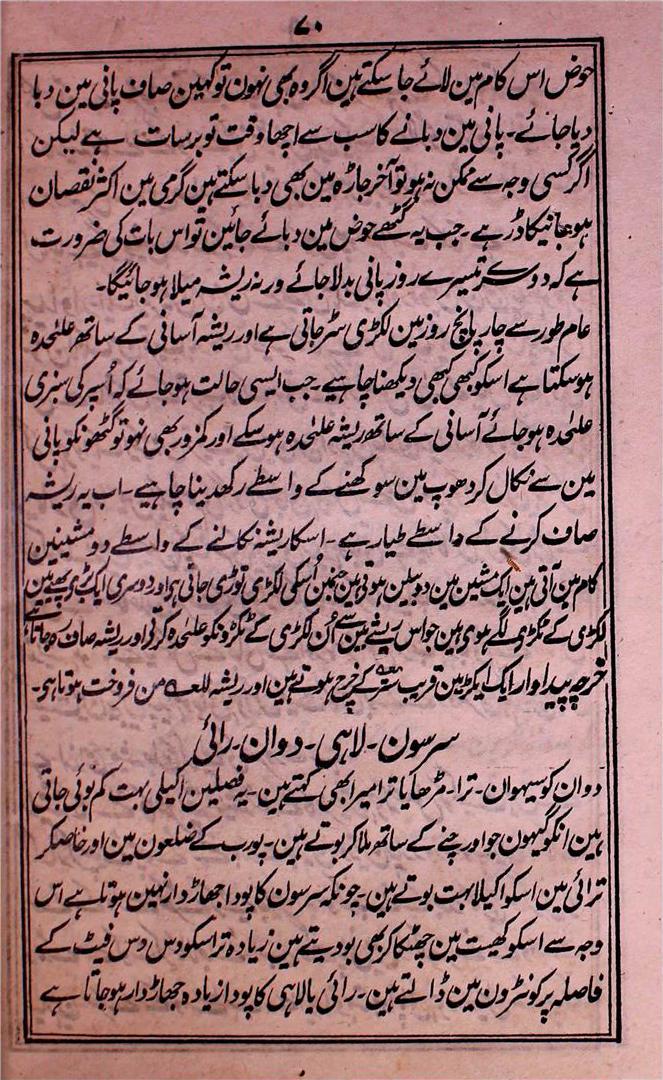 ۷۰
حوض اس کام مین لائے جا سکتے ہین اگر وہ بھی نہون تو کہین صاف پانی مین دبا
دیا جائے۔ پانی مین دبانے کا سب سے اچھا وقت تو برسات ہے لیکن
اگر کسی وجہ سے ممکن نہ ہو تو آخر جاڑہ مین بھی دبا سکتے ہین گرمی مین اکثر نقصان
ہو جانیکا ڈر ہے۔ جب یہ گٹھے حوض مین دبائے جائین تو اس بات کی ضرورت
ہے کہ دوسرے تیسرے روز پانی بدلا جائے ورنہ ریشہ میلا ہو جائیگا۔
عام طور سے چار پانچ روز مین لکڑی سڑ جاتی ہے اور ریشہ آسانی کے ساتھ علٰحدہ
ہو سکتا ہے اسکو کبھی کبھی دیکھنا چاہیے۔ جب ایسی حالت ہو جائے کہ اُسپر کی سبزی
علٰحدہ ہو جائے آسانی کے ساتھ ریشہ علٰحدہ ہو سکے اور کمزور بھی نہو تو گٹھونکو پانی
مین سے نکال کر دھوپ مین سوکھنے کے واسطے رکھدینا چاہیے۔ اب یہ ریشہ
صاف کرنے کے واسطے طیار ہے۔ اسکا ریشہ نکالنے کے واسطے دو مشینین
کام مین آتی ہین ایک مشین مین دو بیلن ہوتی ہین جنمین اُسکی لکڑی توڑی جاتی ہی اور دوسری ایک بڑی پہیے مین
لکڑی کے ٹکڑی لگے ہوی ہین جو اس ریشے مین سے اُن لکڑی کے ٹکڑونکو علٰحدہ کرتی اور ریشہ صاف رہ جاتا ہے
خرچہ پیداوار ایک ایکڑ مین قریب کے خرچ ہوتے ہین اور ریشہ من فروخت ہوتا ہی۔
سرسون۔ لاہی۔ دوان۔ رائی
دوان کو سیہوان۔ ترا۔ مڑھا یا ترامیرا بھی کہتے ہین۔ یہ فصلین اکیلی بہت کم بوئی جاتی
ہین انکو گیہون جو اور چنے کے ساتھ ملا کر بوتے ہین۔ پورب کے ضلعون مین اور خاصکر
ترائی مین اسکو اکیلا بہت بوتے ہین۔ چونکہ سرسون کا پودا جھاڑ دار نہین ہوتا ہے اس
وجہ سے اسکو کھیت مین چھٹکا کر بھی بو دیتے ہین زیادہ تر اسکو دس دس فیٹ کے
فاصلہ پر کونٹرون مین ڈالتے ہین۔ رائی یا لاہی کا پودا زیادہ جھاڑ دار ہو جاتا ہے